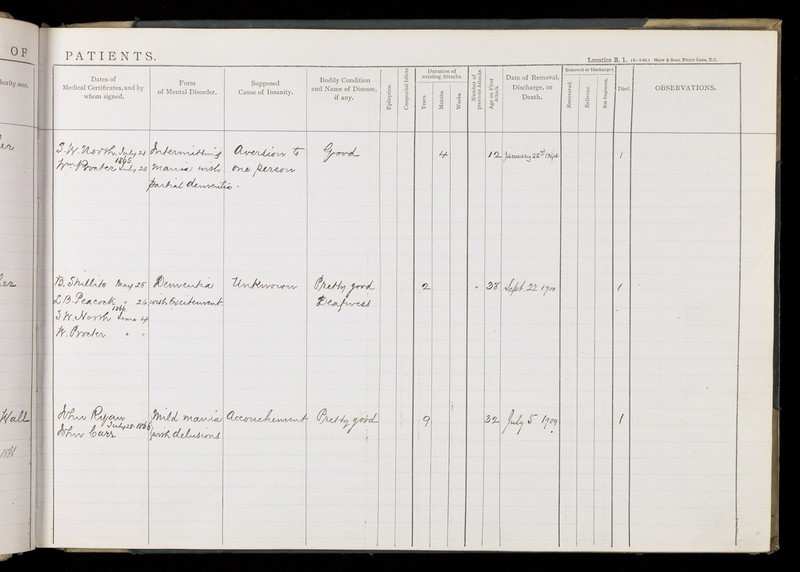 OF
PATIENTS.
Lunatics B. 1.
Dates of
Medical Certificates, and by
whom signed.
Form
of Mental Disorder.
Supposed
Cause of Insanity.
Bodily Condition
and Name of Disease,
if any.
Epileptics.
Congenital Idiots
Duration of
existing Attacks.
Years.
Months.
Weeks
Number of
previous Attacks
Age on First
Attack.
Date of Removal,
Discharge, or
Death.
Removed or Discharged.
Recovered.
Relieved.
Not Improved.
Died.
OBSERVATIONS.
S. W. North July 21 Intermitting Aversion to Good 4 12 January 28 1
1865
Wm Procter July 20 mania with one person
partial dementia.
B. Shillito May 25 Dementia Unknown Pretty good 2 " 38 Sept. 22 1900 1
L B. Peacock " 26 with Excitement Deafness
1866
S W. North June 4
W. Procter " "
Hall John Ryan Mild mania Accouchement Pretty good 9 32 July 5 1909 1
July 28 1866
John Carr with delusions